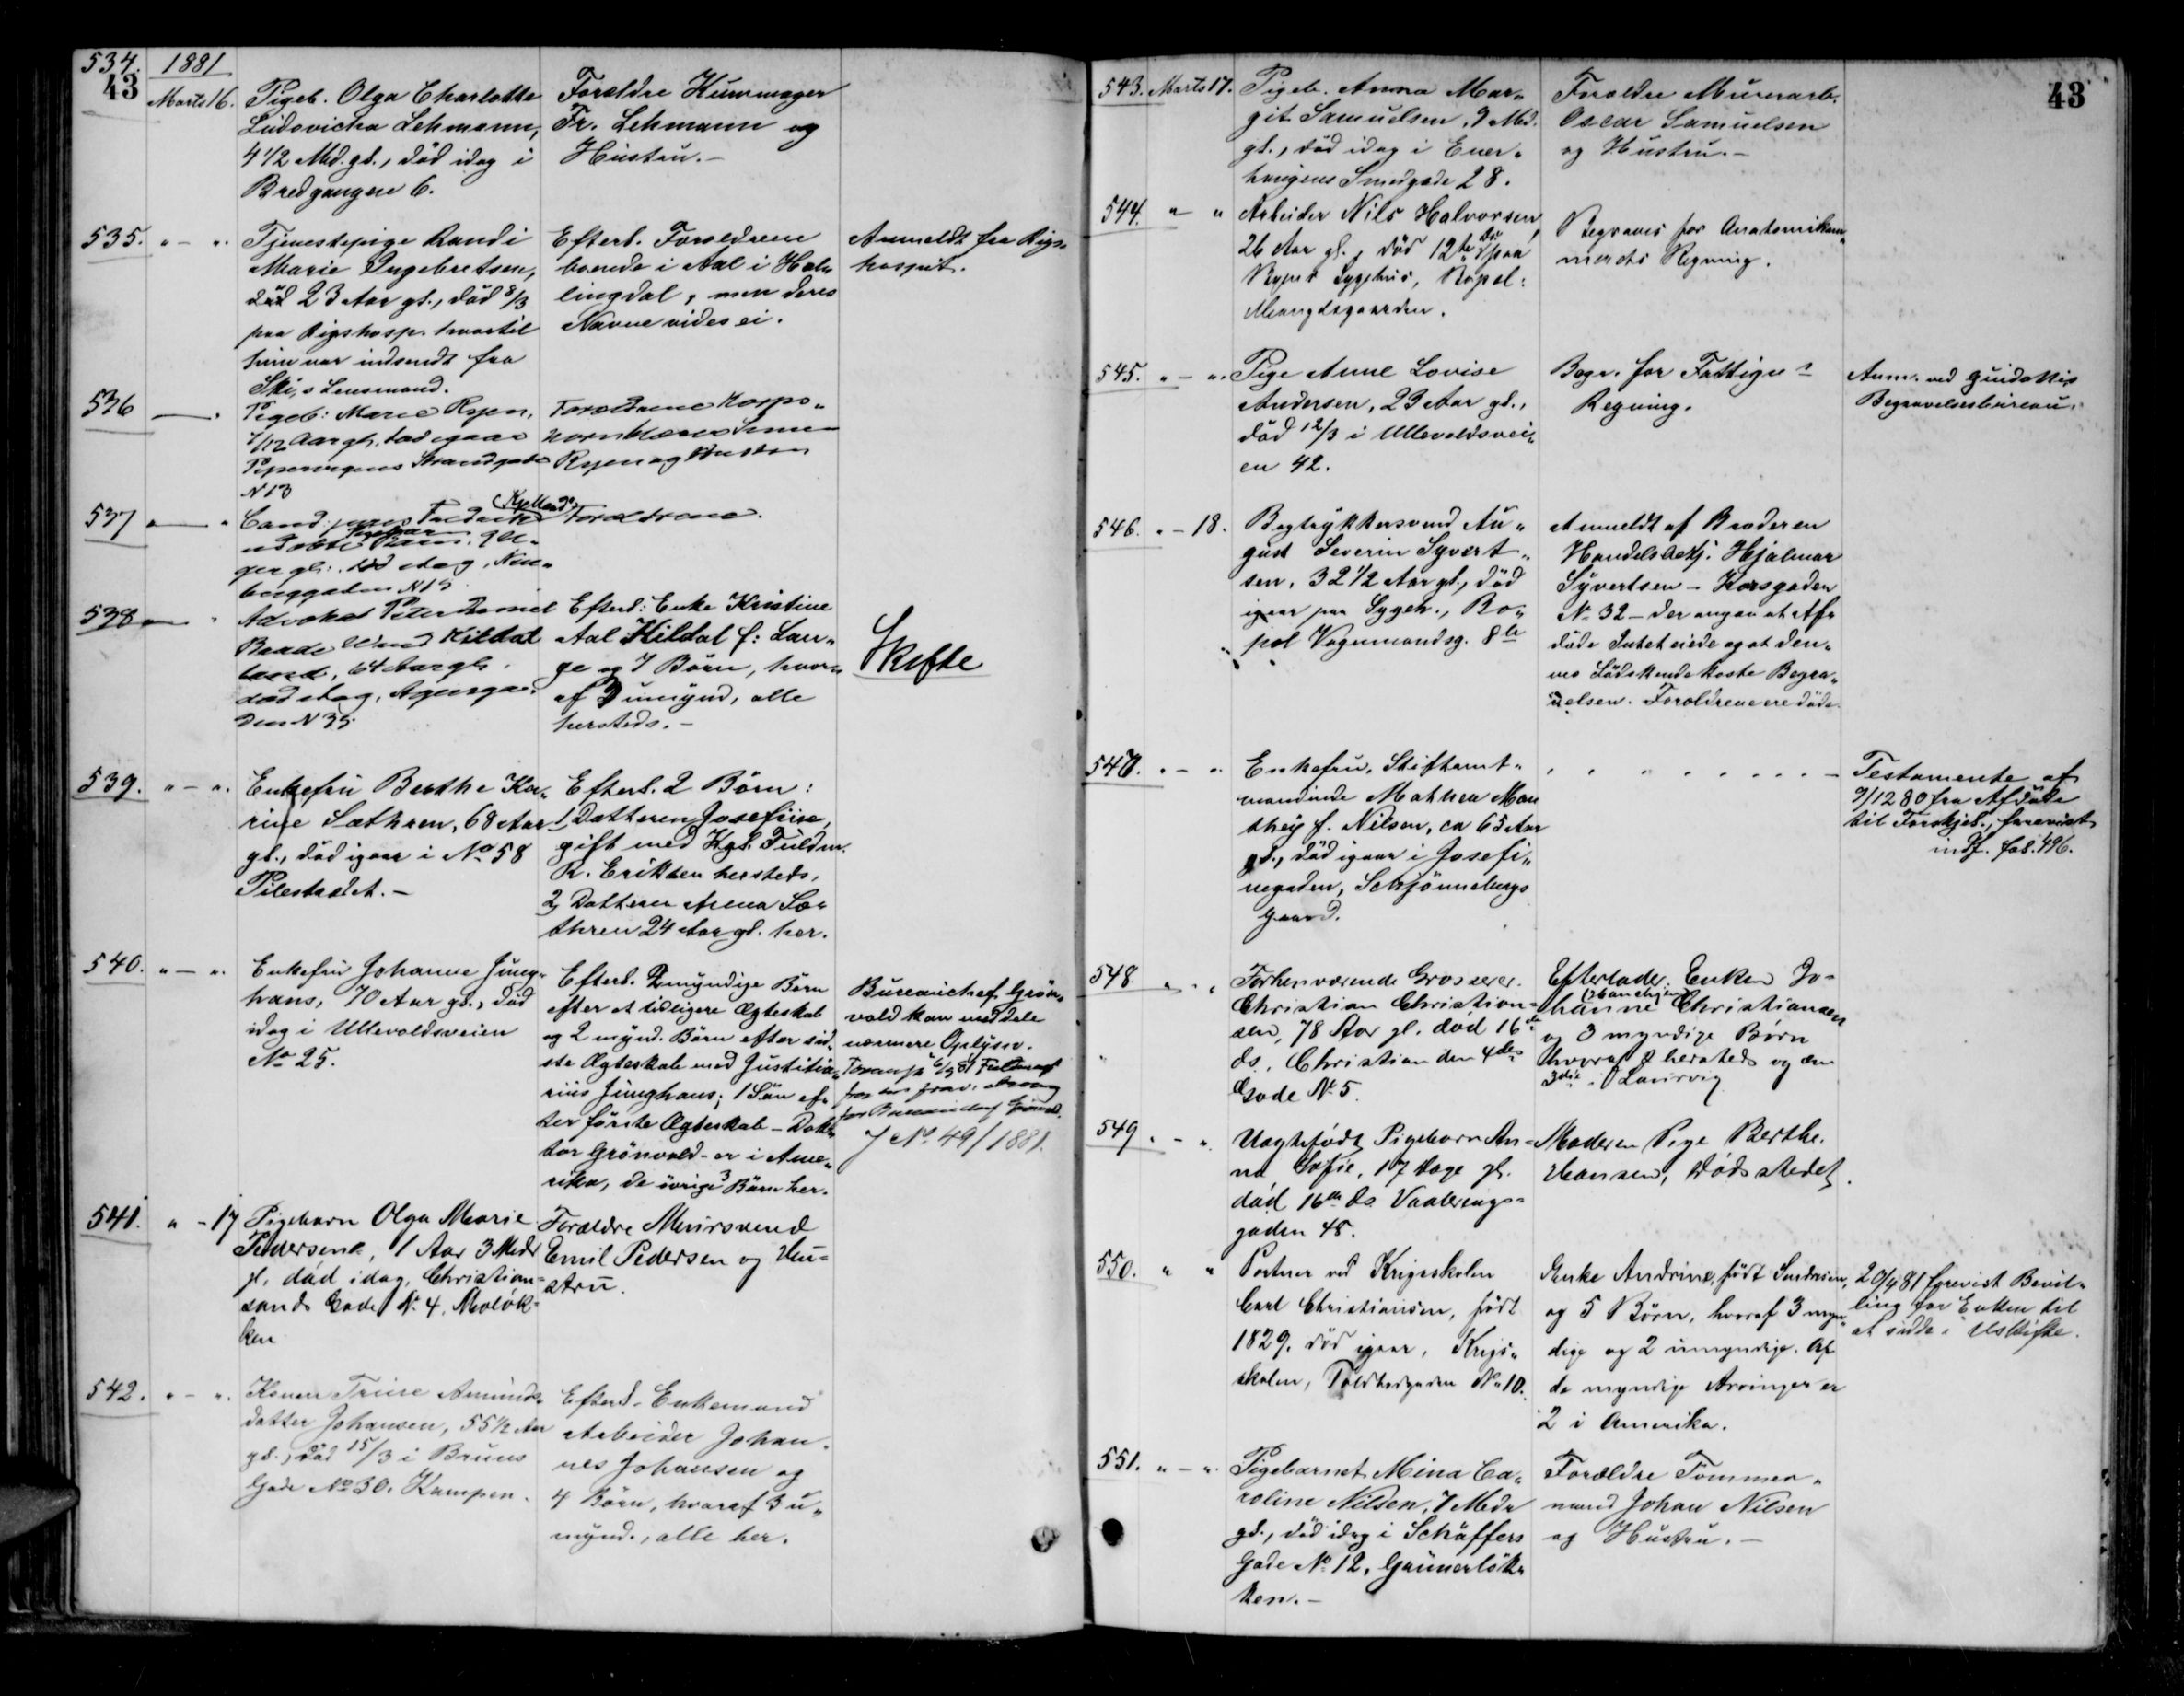 534.
43
1881
Marts 16.
Pigeb. Olga Charlotte
Ludovicha Lehmann,
4 1/2 Md. gl., död idag i
Bredgangen 6.
Forældre
Fr. Lehmann og
Hustru.-
535. " - ".
Tjenestepige Randi
Marie Ingebretsen,
död 23 Aar gl., död 8/3
paa Rigshosp. hvortil
hun var indsendt fra
Ski,s Lensmand.
Efterl. Forældrene
boende i Aal i Hal„
lingdal, men deres
Navne vides ei.
Anmeldt fra Rigs
hospit.
536 —.
Pigeb: Marie Ryen,
7/12 Aar gl. död igaar
Pipervigens Strandgade
N 13
Forældrene Korps„
hornblæser
Ryen og Hustru
537 " — "
Cand: juris Fredrik (Kielland)
gl. död idag,
berggaden N 19
Forældrene.
538 — "
Advokat Peter Daniel
Baade Wind Kildal
64 Aar gl.
död idag, Agersga„
den N 35
Efterl: Enke Kristine
Aal Kildal f: Lan„
ge og 7 Börn, hvor„
af 2 umynd, alle
hersteds.-
Skifte
539. " - ".
Enkefru Berthe Ka„
rine Sæthren, 68 Aar
gl., död igaar i No 58
Pilestrædet.-
Efterl. 2 Börn:
1, Datteren Josefine,
gift med Kgl. Fuldm.
R. Eriksen hersteds,
2, Datteren Anna Sæ„
thren 24 Aar gl. her.
540. " - ".
Enkefru Johanne Jung„
hans, 70 Aar gl., död
idag i Ullevoldsveien
No 25.
Efterl. 2 myndige Börn
efter et tidligere Ægteskab
og 2 mynd. Börn efter sid„
ste Ægteskab med Justitia„
rius Junghans; 1 Sön ef„
ter förste Ægteskab - Dok„
tor Grönvold - er i Ame„
rika, de övrige 3 Börn her.
Bureauchef Grön„
vold kan meddele
nærmere Oplysn.
J No 49/1881.
541. " - 17
Pigebarn Olga Marie
Pedersen, 1 Aar 3 Mdr
gl. död idag, Christian=
sands Gade No 4. Moløk=
ken
Forældre Murersvend
Emil Pedersen og Hu=
stru.
542. " - ".
Konen Trine Amunds
datter Johansen, 55 1/2 Aar
gl., död 15/3 i Bruns
Gade No 30. Kampen.
Efterl. Enkemand
Arbeider Johan„
nes Johansen og
4 Börn, hvoraf 3 u„
mynd., alle her.
43
543. Marts 17.
Pigeb. Anna Mar„
git Samuelsen, 9 Md.
gl., död idag i Ener„
haugens Smedgade 28.
Forældre Murerarb.
Oscar Samuelsen
og Hustru.-
544. " "
Arbeider Nils Halvorsen,
26 Aar gl., död 12te ds. paa
Byens Sygehus, Bopæl:
Mangelsgaarden.
Begraves for Anatomikam„
merets Regning.
545. " - ".
Pige Anne Lovise
Andersen, 23 Aar gl.,
död 12/3 i Ullevoldsvei„
en 42.
Begr. for Fattigv:
Regning.
Anm. ved Guidottis
Begravelsesbureau.
546. " - 18.
Bogtrykkersvend Au„
gust Severin Syvert„
sen, 32 1/2 Aar gl., död
igaar paa Sygeh., Bo„
pæl Vognmandsg. 8 b
Anmeldt af Broderen
Handelsbetj. Hjalmar
Syvertsen - Korsgaden
No 32 - der angav at Af„
döde Intet eiede og at den„
nes Södskende koste Begra„
velsen. Forældrene ere döde.
547. " - "
Enkefru, Stiftamt„
mandinde Mathea Man
they f. Nilsen, ca 65 Aar
gl., död igaar i Josefi„
negaden, Schjönnebergs
Gaard.
Testamente af
9/12 80 fra Afdöde
til Forskjel., forevist
indf. fol. 496.
548 " - "
Forhenværende Grosserer
Christian Christian=
sen, 78 Aar gl. död 16de
ds, Christian den 4des
Gade No 5.
Efterlader Enken Jo=
hanne Christiansen
og 3 myndige Børn
hvoraf 2 hersteds og den
3die i Laurvig
549. " - "
Uægtefødt Pigebarn An=
na Sofie, 17 Dage gl.
död 16de ds Vaalerengs=
gaden 48.
Moderen Pige Berthe
Hansen, Dødsstedet.
550. " "
Portner ved Krigsskolen
Carl Christiansen, født
1829, död igaar, Krigs„
skolen, Toldbodgaden No 10.
Enke Andrine, født
og 5 Börn, hvoraf 3 myn„
dige og 2 umyndige. Af
de myndige Arvinger er
2 i Amerika.
20/4 81 forevist Bevil„
ling for Enken til
at sidde i Uskifte.
551. " - ".
Pigebarnet Mina Ca„
roline Nilsen, 7 Mdr
gl., död idag i Schäffers
Gade No 12, Grünerlök„
ken.-
Forældre Tömmer„
mand Johan Nilsen
og Hustru.-